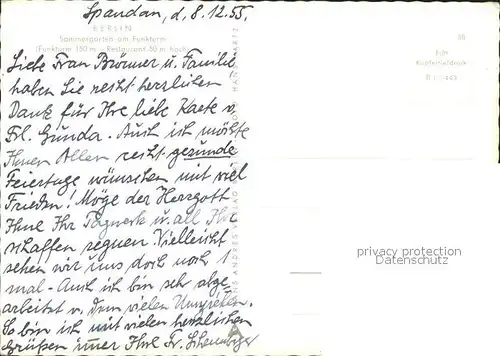 Spandau, d. 8.12.55.
BERLIN
Sommergarten am Funkturm
(Funkturm 150 m - Restaurant 50 m hoch)
Liebe Frau Brümmer u. Familie
haben Sie recht herzlichen
Dank für Ihre liebe Karte v.
Frl. Gunda. Auch ich möchte
Ihnen Allen recht gesunde
Feiertage wünschen mit viel
Frieden! Möge der Herrgott
Ihne Ihr Tagwerk u. all Ihr
schaffen segnen. Vielleicht
sehen wir uns doch noch 1
mal - Auch ich bin sehr abge-
arbeitet v. dem vielen Umziehen.
So bin ich mit vielen herzlichen
Grüßen immer Ihre Fr.
38
Echt
Kupfertiefdruck
privacy protection
Datenschutz